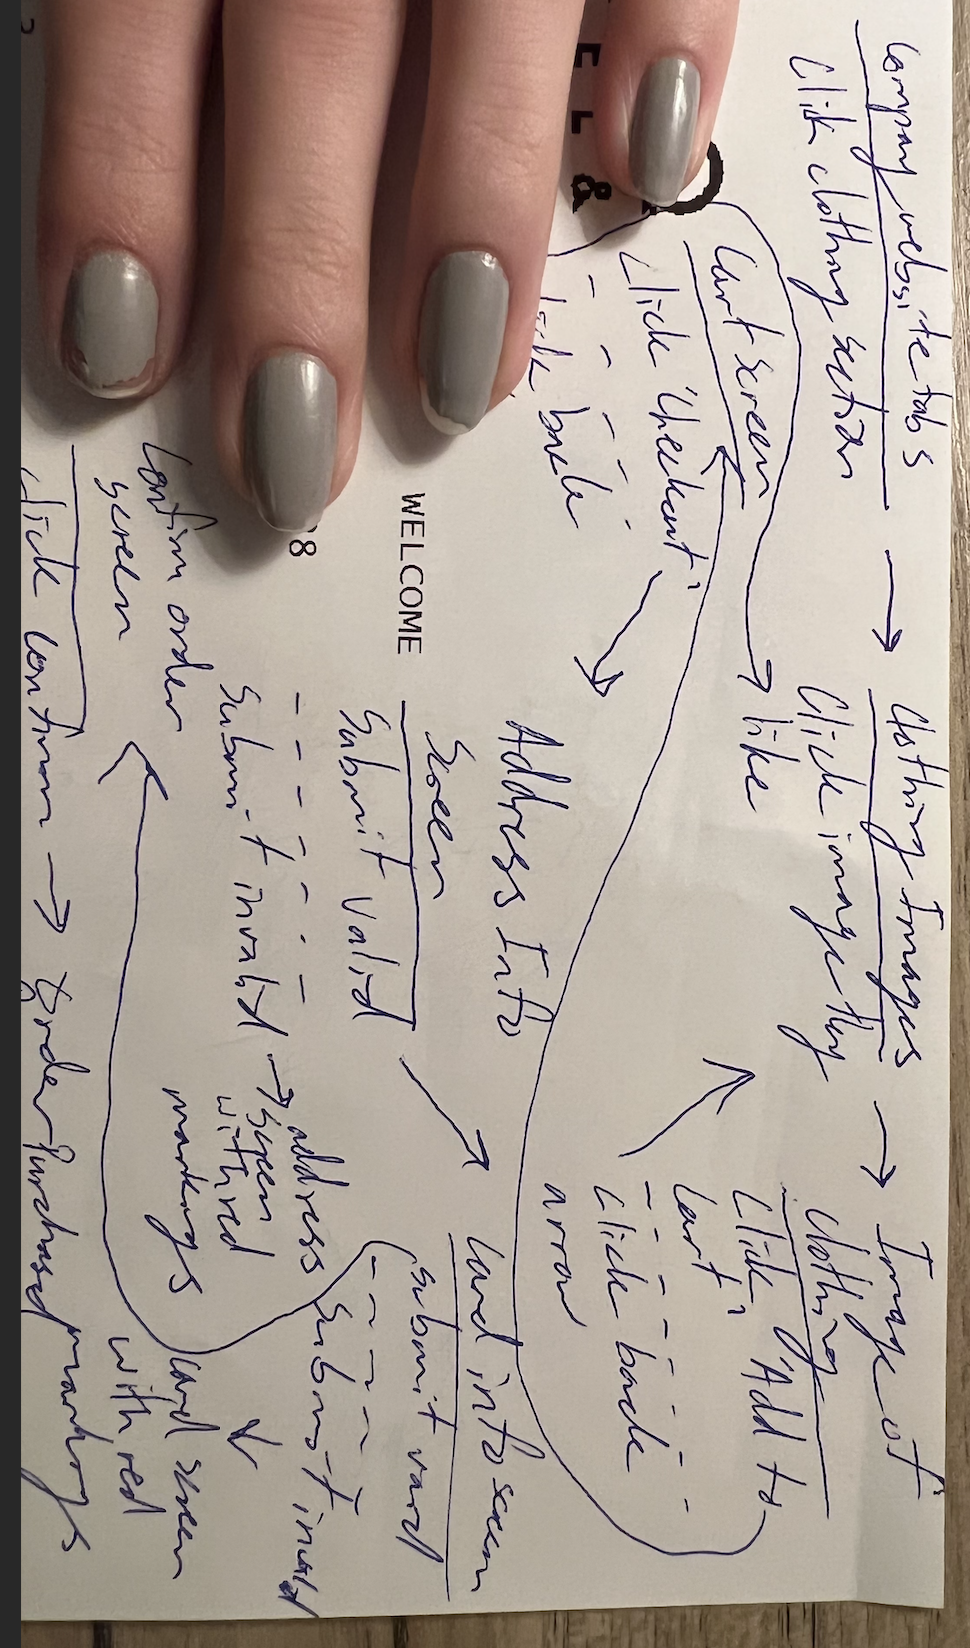 Company website tabs
Click clothing section
→
Clothing Images
Click image they
like
→
Image of
Clothing
Click "Add to
Cart"
- - - - -
Click back
arrow
Cart screen
Click "Checkout"
- - - -
back
→
Address Info
Screen
Submit valid
- - - - - - -
Submit invalid →
address
screen
with red
markings
Card info screen
submit
- - - - -
Submit
Card screen
with red
markings
Confirm order
screen
Click Confirm →
Order Purchased
E L &
WELCOME
8